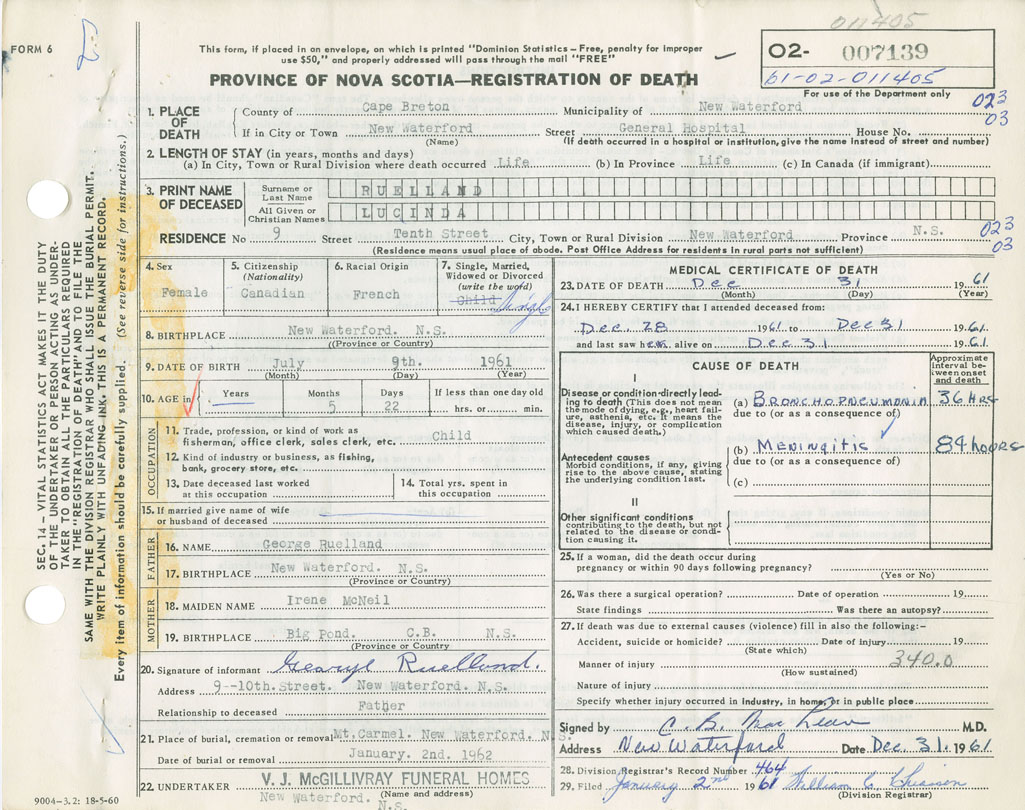 011405
FORM 6
This form, if placed in an envelope, on which is printed "Dominion Statistics – Free, penalty for improper
use $50," and properly addressed will pass through the mail "FREE"
PROVINCE OF NOVA SCOTIA—REGISTRATION OF DEATH
O2- 007139
61-02-011405
For use of the Department only
023
03
1. PLACE OF DEATH
County of Cape Breton Municipality of New Waterford
If in City or Town New Waterford Street General Hospital House No.
(Name) (If death occurred in a hospital or institution, give the name instead of street and number)
2. LENGTH OF STAY (in years, months and days)
(a) In City, Town or Rural Division where death occurred Life (b) In Province Life (c) In Canada (if immigrant)
3. PRINT NAME OF DECEASED
Surname or Last Name RUELLAND
All Given or Christian Names LUCINDA
RESIDENCE No 9 Street Tenth Street City, Town or Rural Division New Waterford Province N.S.
(Residence means usual place of abode. Post Office Address for residents in rural parts not sufficient)
023
03
4. Sex
Female
5. Citizenship
(Nationality)
Canadian
6. Racial Origin
French
7. Single, Married,
Widowed or Divorced
(write the word)
Child Single
8. BIRTHPLACE New Waterford. N.S.
((Province or Country)
9. DATE OF BIRTH July 9th. 1961
(Month) (Day) (Year)
10. AGE in Years Months Days If less than one day old
5 22 hrs. or min.
OCCUPATION
11. Trade, profession, or kind of work as
fisherman, office clerk, sales clerk, etc. Child
12. Kind of industry or business, as fishing,
bank, grocery store, etc.
13. Date deceased last worked
at this occupation
14. Total yrs. spent in
this occupation
15. If married give name of wife
or husband of deceased
FATHER
16. NAME George Ruelland
17. BIRTHPLACE New Waterford. N.S.
(Province or Country)
MOTHER
18. MAIDEN NAME Irene McNeil
19. BIRTHPLACE Big Pond. C.B. N.S.
(Province or Country)
20. Signature of informant George Ruelland.
Address 9--10th.Street. New Waterford. N.S.
Relationship to deceased Father
21. Place of burial, cremation or removal Mt.Carmel. New Waterford. N.S.
Date of burial or removal January. 2nd. 1962
22. UNDERTAKER V. J. McGILLIVRAY FUNERAL HOMES
(Name and address)
New Waterford.
N.S.
MEDICAL CERTIFICATE OF DEATH
23. DATE OF DEATH Dec 31 1961
(Month) (Day) (Year)
24. I HEREBY CERTIFY that I attended deceased from:
Dec. 28 1961 to Dec 31 1961.
and last saw her alive on Dec 31 1961.
CAUSE OF DEATH
Approximate
interval be-
tween onset
and death
I
Disease or condition directly lead-
ing to death (This does not mean
the mode of dying, e.g., heart failure,
asthenia, etc. It means the
disease, injury, or complication
which caused death.)
(a) BRONCHOPNEUMONIA 36 HRS
due to (or as a consequence of)
Antecedent causes
Morbid conditions, if any, giving
rise to the above cause, stating
the underlying condition last.
(b) MENINGITIS 84 hours
due to (or as a consequence of)
(c)
II
Other significant conditions
contributing to the death, but not
related to the disease or condi-
tion causing it.
25. If a woman, did the death occur during
pregnancy or within 90 days following pregnancy?
(Yes or No)
26. Was there a surgical operation? Date of operation 19
State findings Was there an autopsy?
27. If death was due to external causes (violence) fill in also the following:–
Accident, suicide or homicide? Date of injury 19
(State which)
Manner of injury 340.0
(How sustained)
Nature of injury
Specify whether injury occurred in industry, in home, or in public place
Signed by C. B. MacLean M.D.
Address New Waterford Date Dec. 31. 1961
28. Division Registrar's Record Number 464
29. Filed January 2nd 1961 William C.
(Division Registrar)
SEC. 14 – VITAL STATISTICS ACT MAKES IT THE DUTY
OF THE UNDERTAKER OR PERSON ACTING AS UNDER-
TAKER TO OBTAIN ALL THE PARTICULARS REQUIRED
IN THE "REGISTRATION OF DEATH" AND TO FILE THE
SAME WITH THE DIVISION REGISTRAR WHO SHALL ISSUE THE BURIAL PERMIT.
WRITE PLAINLY WITH UNFADING INK. THIS IS A PERMANENT RECORD.
Every item of information should be carefully supplied. (See reverse side for instructions.)
9004-3.2: 18-5-60